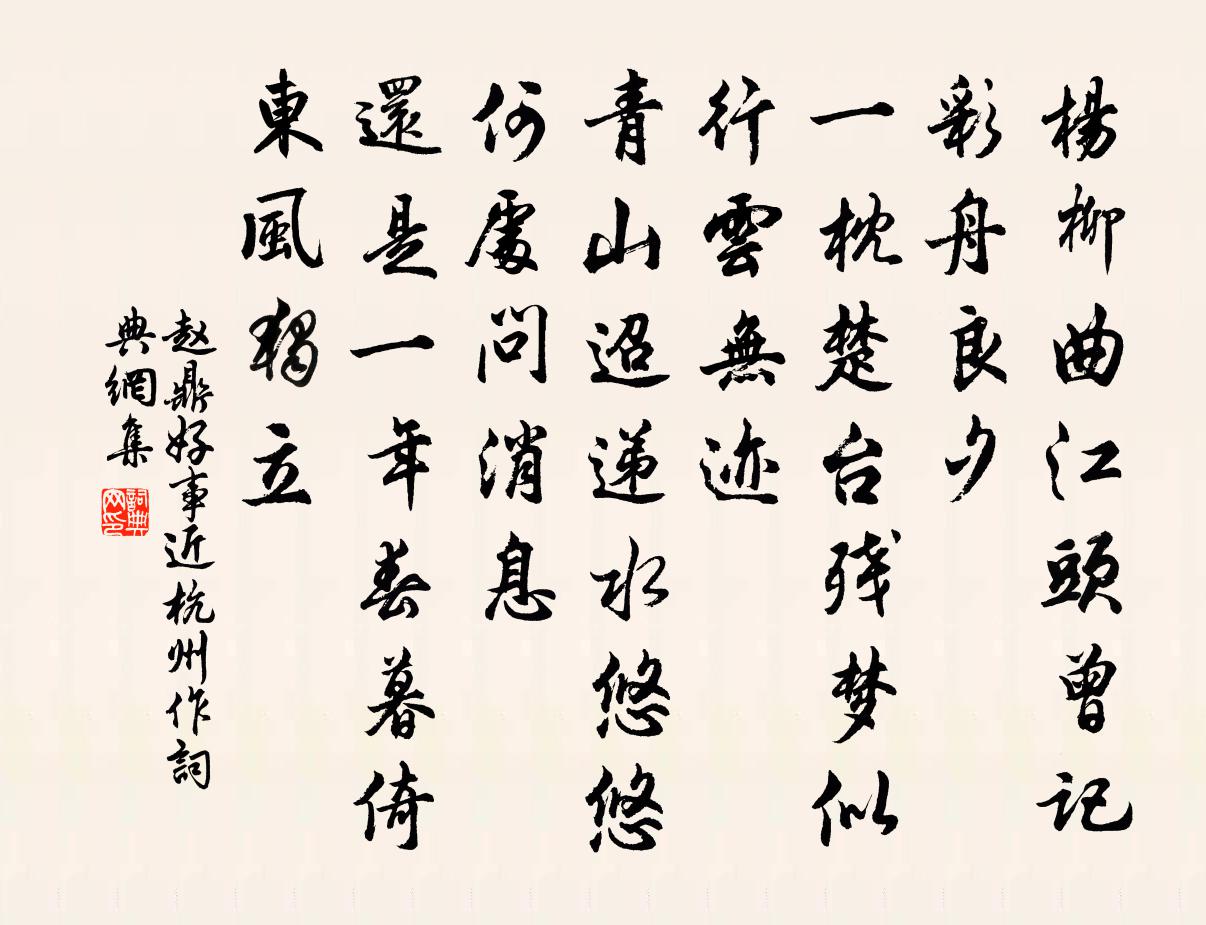 楊柳曲江頭曾記
彩舟良夕
一枕楚台残梦似
行雲無迹
青山迢递水悠悠
何處問消息
還是一年春暮倚
東風獨立
赵鼎好事近杭州作詞
典網集
詞典网印